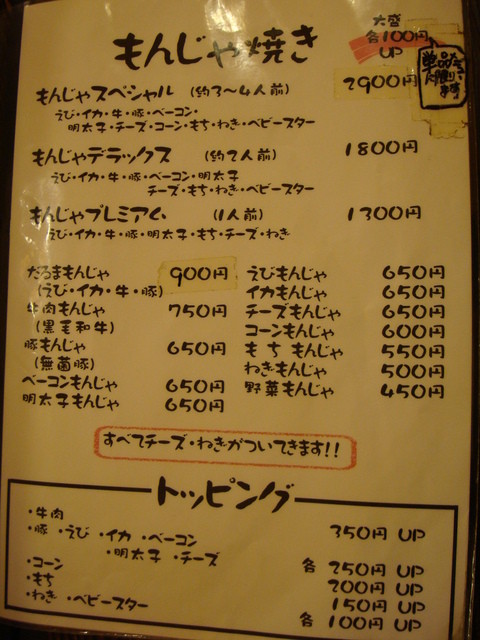 もんじゃ焼き
大盛
各100円
UP
もんじゃスペシャル (約3〜4人前) 2900円
えび・イカ・牛・豚・ベーコン・
明太子・チーズ・コーン・もち・ねぎ・ベビースター
もんじゃデラックス (約2人前) 1800円
えび・イカ・牛・豚・ベーコン・明太子
チーズ・もち・ねぎ・ベビースター
もんじゃプレミアム (1人前) 1300円
えび・イカ・牛・豚・明太子・もち・チーズ・ねぎ
だるまもんじゃ 900円
(えび・イカ・牛・豚)
牛肉もんじゃ 750円
(黒毛和牛)
豚もんじゃ 650円
(無菌豚)
ベーコンもんじゃ 650円
明太子もんじゃ 650円
えびもんじゃ 650円
イカもんじゃ 650円
チーズもんじゃ 650円
コーンもんじゃ 600円
もちもんじゃ 550円
ねぎもんじゃ 500円
野菜もんじゃ 450円
すべてチーズ・ねぎがついてきます!!
トッピング
・牛肉 350円 UP
・豚・えび・イカ・ベーコン
・明太子・チーズ 各250円 UP
・コーン 200円 UP
・もち 150円 UP
・ねぎ・ベビースター 各100円 UP